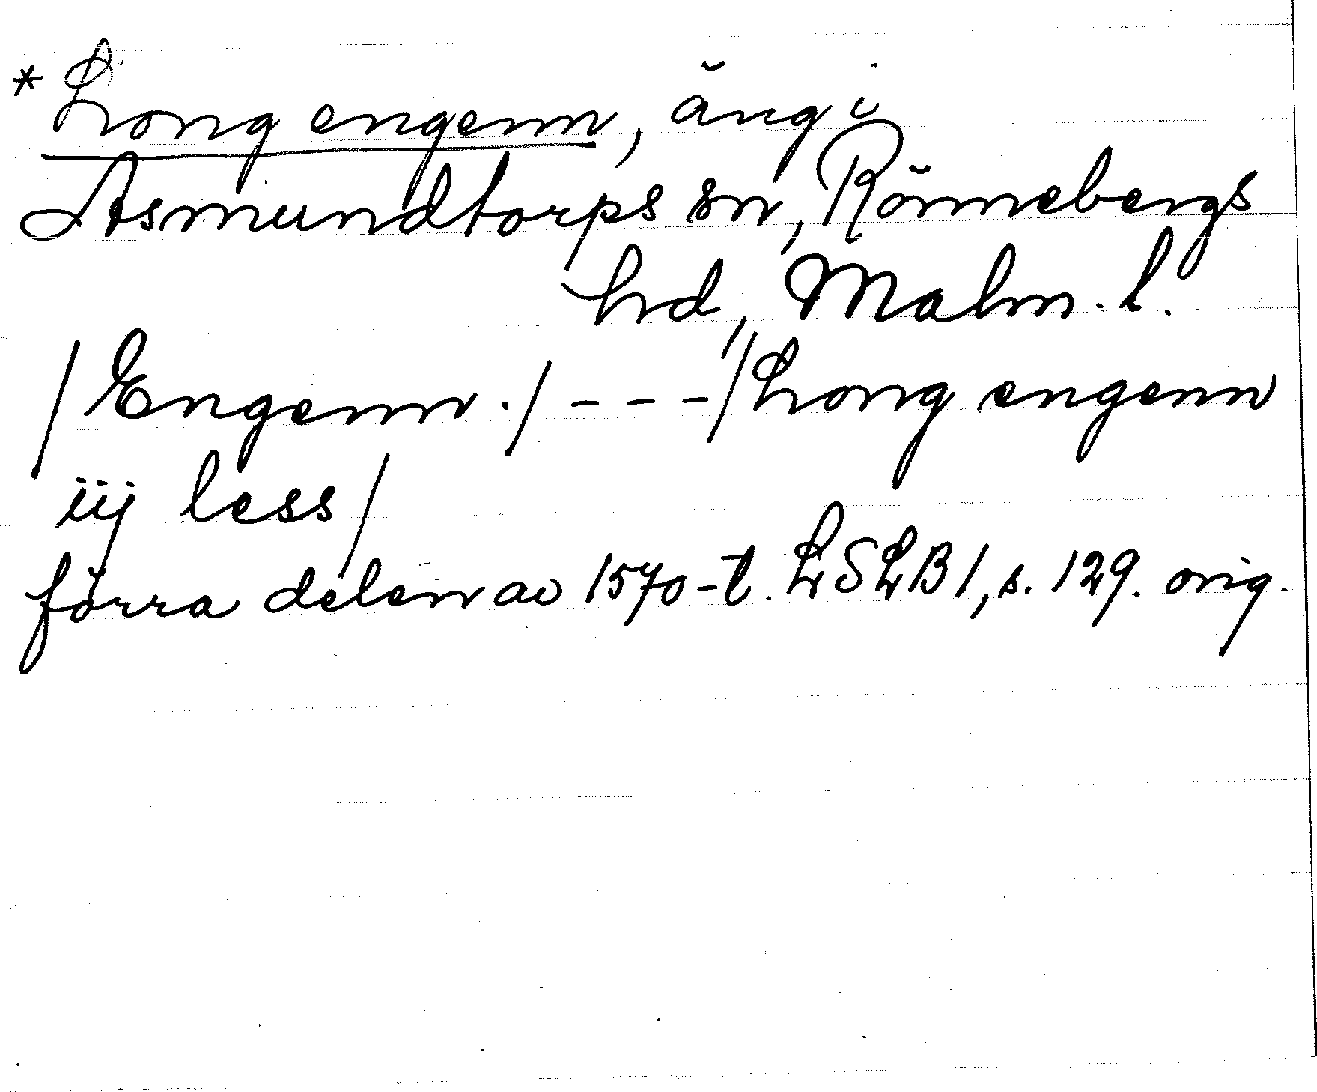 * Long engenn, äng i
Asmundtorps sn, Rönnebergs
hd, Malm. l.
/Engenn./ - - - /Long engenn
iij less/
förra delen av 1570-t. LSLB 1, s. 129. orig.